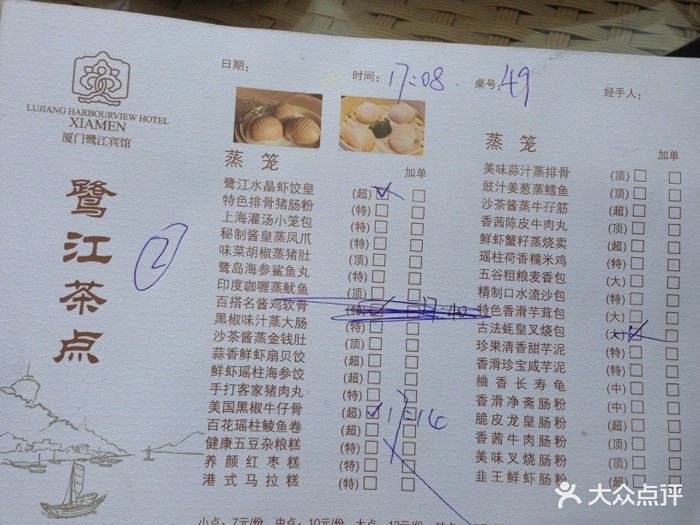 日期：
时间：17:08
桌号：49
经手人：
LUJIANG HARBOURVIEW HOTEL
XIAMEN
厦门鹭江宾馆
鹭江茶点
2
蒸笼 加单
鹭江水晶虾饺皇 (超)
特色排骨猪肠粉 (特)
上海灌汤小笼包 (特)
秘制酱皇蒸凤爪 (特)
味菜胡椒蒸猪肚 (顶)
鹭岛海参鲨鱼丸 (特)
印度咖喱蒸鱿鱼 (顶)
百搭名酱鸡软骨 (特) 17:40
黑椒味汁蒸大肠 (特)
沙茶酱蒸金钱肚 (顶)
蒜香鲜虾扇贝饺 (超)
鲜虾瑶柱海参饺 (超)
手打客家猪肉丸 (特)
美国黑椒牛仔骨 (超) 17:14
百花瑶柱鲮鱼卷 (顶)
健康五豆杂粮糕 (特)
养颜红枣糕 (特)
港式马拉糕 (特)
蒸笼 加单
美味蒜汁蒸排骨 (顶)
豉汁姜葱蒸鳕鱼 (顶)
沙茶酱蒸牛孖筋 (超)
香茜陈皮牛肉丸 (顶)
鲜虾蟹籽蒸烧卖 (超)
瑶柱荷香糯米鸡 (特)
五谷粗粮麦香包 (大)
精制口水流沙包 (大)
特色香滑芋茸包 (大)
古法蚝皇叉烧包 (大)
珍果清香甜芋泥 (特)
香滑珍宝咸芋泥 (特)
柚香长寿龟 (中)
香滑净斋肠粉 (中)
脆皮龙皇肠粉 (超)
香茜牛肉肠粉 (顶)
美味叉烧肠粉 (顶)
韭王鲜虾肠粉 (超)
小点：7元/份 中点：10元/份 大点：12元/份
大众点评